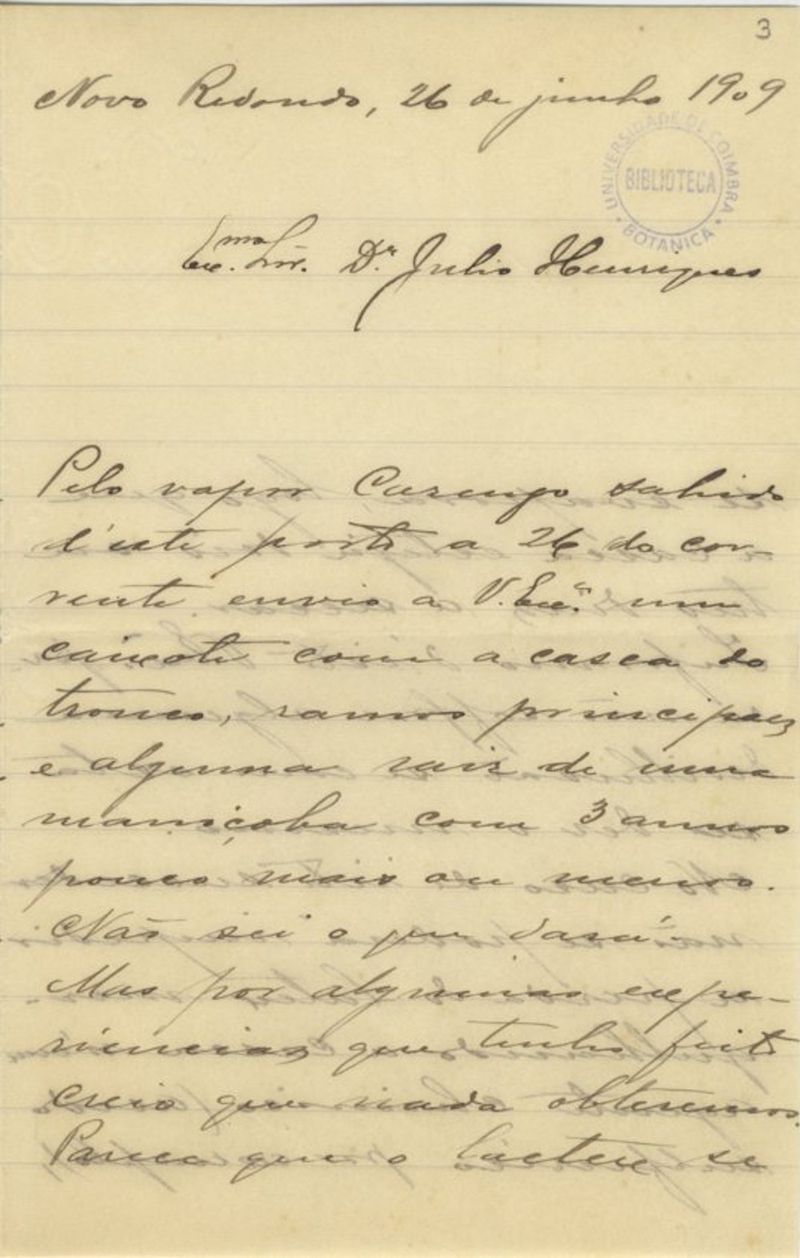 3
Novo Redondo, 26 de junho 1909
UNIVERSIDADE DE COIMBRA
BIBLIOTECA
BOTANICA
Exmo. Snr. Dr. Julio Henriques
Pelo vapor Cazengo sahido
d'este porto a 26 do cor-
rente envio a V. Exª. um
caixote com a casca do
tronco, ramos principaes
e alguma raiz de uma
maniçoba com 3 annos
pouco mais ou menos.
Não sei o que dará.
Mas por algumas expe-
riencias que tenho feito
creio que nada obteremos.
Parece que o lactex se